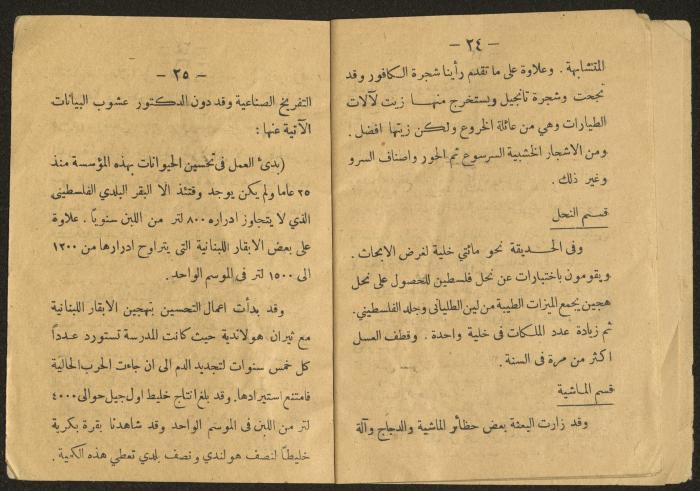 — ٢٤ —
المتشابهة . وعلاوة على ما تقدم رأينا شجرة الكافور وقد
نجحت وشجرة تانجيل ويستخرج منهـا زيت لآلات
الطيارات وهي من عائلة الخروع ولكن زيتها افضل .
ومن الاشجار الخشبية السرسوع ثم الحور واصناف السرو
وغير ذلك .
قسم النحل
وفى الحديقة نحو مائتي خلية لغرض الابحاث .
ويقومون باختبارات عن نحل فلسطين للحصول على نحل
هجين يجمع الميزات الطيبة من لين الطليانى وجلد الفلسطيني.
ثم زيادة عدد الملكات فى خلية واحدة . وقطف العسل
اكثر من مرة فى السنة .
قسم الماشية
وقد زارت البعثة بعض حظائر الماشية والدجاج وآلة
— ٢٥ —
التفريخ الصناعية وقد دون الدكتور عشوب البيانات
الآتية عنها :
(بدئ العمل فى تحسين الحيوانات بهذه المؤسسة منذ
٢٥ عاما ولم يكن يوجد وقتئذ الا البقر البلدي الفلسطينى
الذي لا يتجاوز ادراره ٨٠٠ لتر من اللبن سنويًا . علاوة
على بعض الابقار اللبنانية التى يتراوح ادرارها من ١٢٠٠
الى ١٥٠٠ لتر فى الموسم الواحد.
وقد بدأت اعمال التحسين بتهجين الابقار اللبنانية
مع ثيران هولاندية حيث كانت المدرسة تستورد عـدداً
كل خمس سنوات لتجديد الدم الى ان جاءت الحرب الحالية
فامتنع استيرادها. وقد بلغ انتاج خليط اول جيل حوالى ٤٠٠٠
لتر من اللبن فى الموسم الواحد وقد شاهدنا بقرة بكرية
خليطًا لنصف هولندي ونصف بلدي تعطي هذه الكمية .